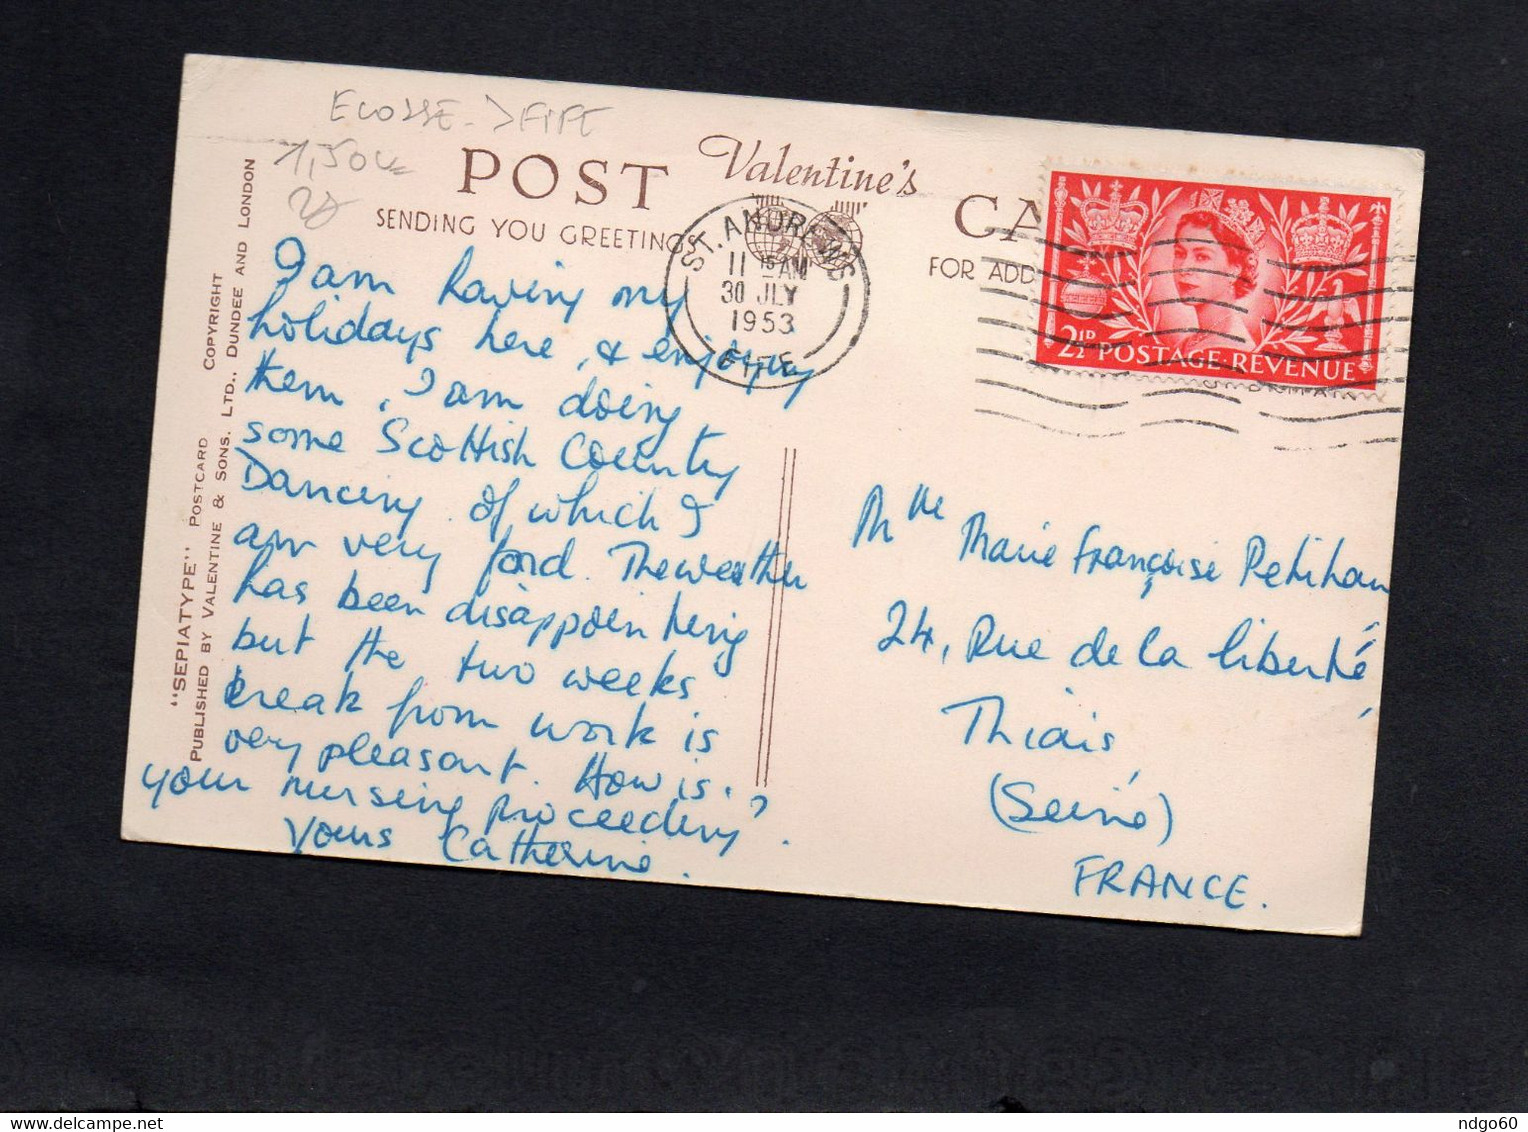 ECOSSE -> FIFE
1,50
POST Valentine's CA
SENDING YOU GREETING
FOR ADD
ST. ANDREWS
11 15 AM
30 JLY
1953
FIFE
2½D POSTAGE·REVENUE
"SEPIATYPE" POSTCARD COPYRIGHT
PUBLISHED BY VALENTINE & SONS. LTD., DUNDEE AND LONDON
I am having my
holidays here, & enjoying
them. I am doing
some Scottish Country
Dancing of which I
am very fond. The weather
has been disappointing
but the two weeks
break from work is
very pleasant. How is
your nursing proceeding?
Yours Catherine.
Mlle Marie Françoise Petithan
24, Rue de la liberté
Thiais
(Seine)
FRANCE.
ndgo60